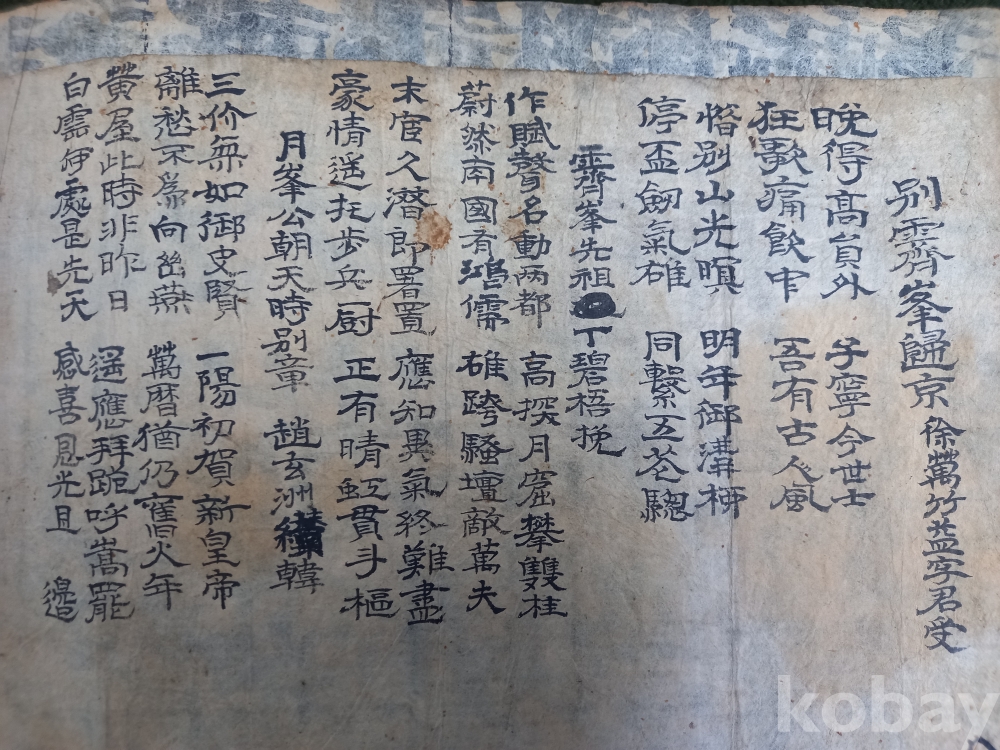 別霽峯歸京 徐萬竹益字君受
晚得高員外 子寧今世士
狂歌痛飮中 吾有古人風
惜別山光嗔 明年御溝柳
停盃劒氣雄 同繫五花驄
霽峯先祖 丁碧梧挽
作賦聲名動兩都 高探月窟攀雙桂
蔚然南國有鴻儒 雄跨騷壇敵萬夫
末宦久潛郎署置 應知異氣終難盡
豪情遥托步兵厨 正有晴虹貫斗樞
月峯公朝天時別章 趙玄洲纘韓
三价無如御史賢 一陽初賀新皇帝
離愁不爲向幽燕 萬曆猶仍舊火年
黃屋此時非昨日 遥應拜跪呼嵩罷
白雲何處是先天 感喜恩光且 邊
kobay